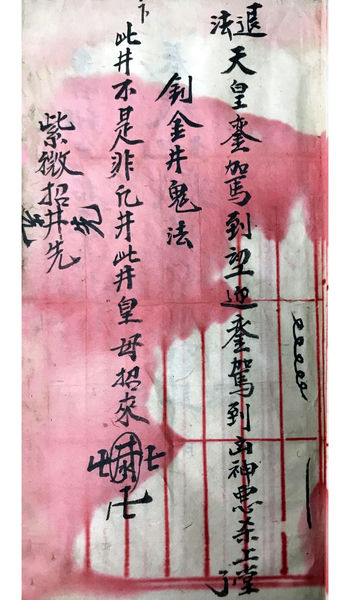 退法 天皇銮駕到 迎銮駕到 山神惡杀上堂了
釗金井鬼法
此井不是非凡井此井皇母招來
紫微招井先